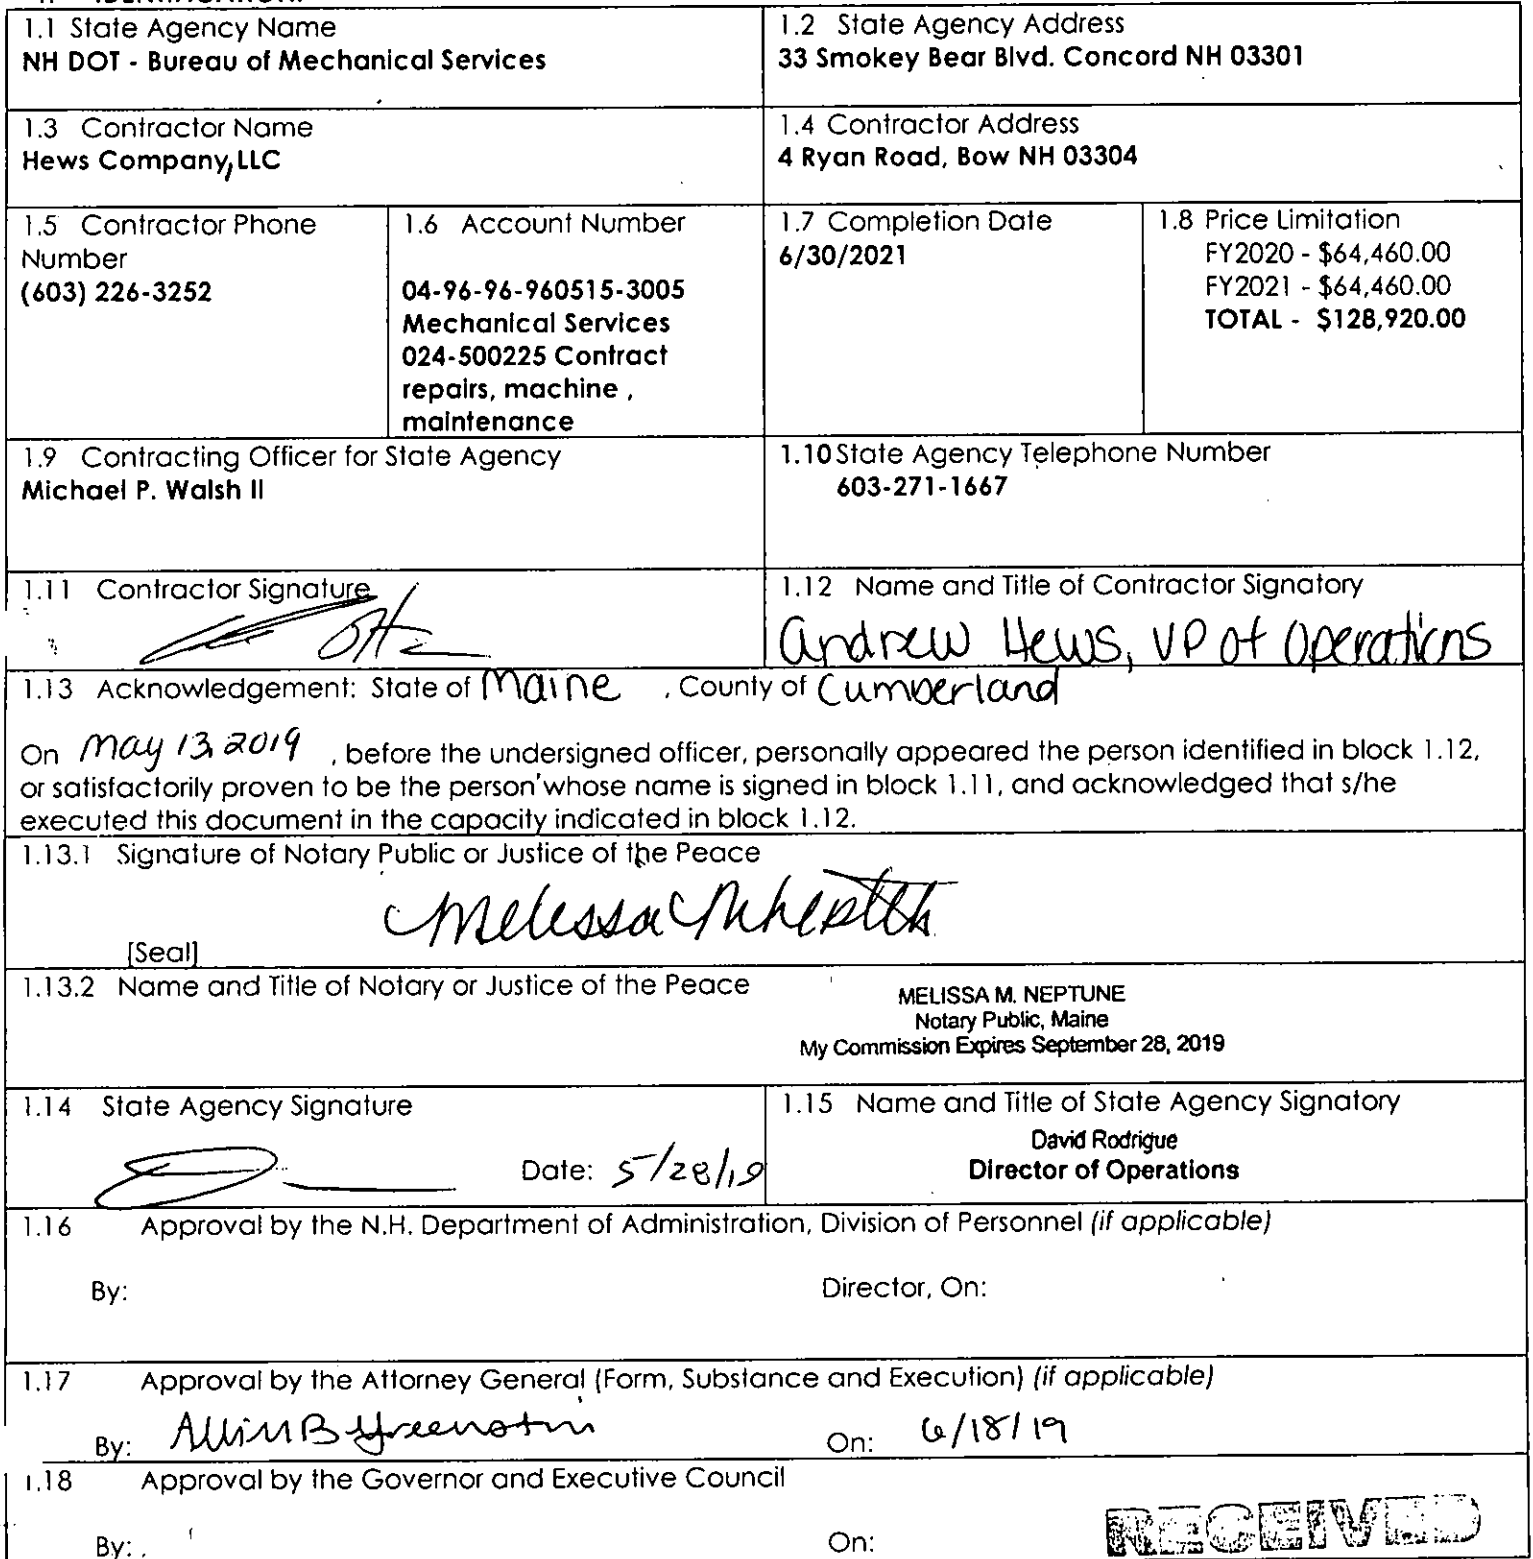 1.1 State Agency Name
NH DOT - Bureau of Mechanical Services
1.2 State Agency Address
33 Smokey Bear Blvd. Concord NH 03301
1.3 Contractor Name
Hews Company, LLC
1.4 Contractor Address
4 Ryan Road, Bow NH 03304
1.5 Contractor Phone
Number
(603) 226-3252
1.6 Account Number
04-96-96-960515-3005
Mechanical Services
024-500225 Contract
repairs, machine ,
maintenance
1.7 Completion Date
6/30/2021
1.8 Price Limitation
FY2020 - $64,460.00
FY2021 - $64,460.00
TOTAL - $128,920.00
1.9 Contracting Officer for State Agency
Michael P. Walsh II
1.10 State Agency Telephone Number
603-271-1667
1.11 Contractor Signature
1.12 Name and Title of Contractor Signatory
Andrew Hews, VP of Operations
1.13 Acknowledgement: State of Maine , County of Cumberland
On May 13, 2019 , before the undersigned officer, personally appeared the person identified in block 1.12,
or satisfactorily proven to be the person whose name is signed in block 1.11, and acknowledged that s/he
executed this document in the capacity indicated in block 1.12.
1.13.1 Signature of Notary Public or Justice of the Peace
Melissa
[Seal]
1.13.2 Name and Title of Notary or Justice of the Peace
MELISSA M. NEPTUNE
Notary Public, Maine
My Commission Expires September 28, 2019
1.14 State Agency Signature
Date: 5/28/19
1.15 Name and Title of State Agency Signatory
David Rodrigue
Director of Operations
1.16 Approval by the N.H. Department of Administration, Division of Personnel (if applicable)
By: Director, On:
1.17 Approval by the Attorney General (Form, Substance and Execution) (if applicable)
By: On: 6/18/19
1.18 Approval by the Governor and Executive Council
By: On:
RECEIVED